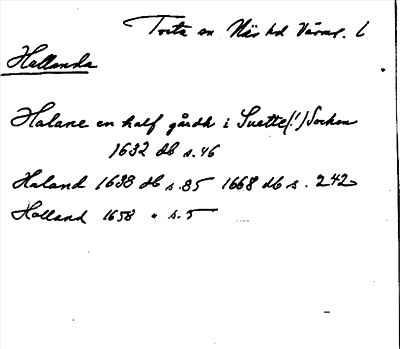 Torta sn Näs hd Värml. L
Hallanda
Halane en half gårdh i Suette(!) Socken
1632 db s. 46
Haland 1638 db s. 85 1668 db s. 242
Halland 1658 " s. 5